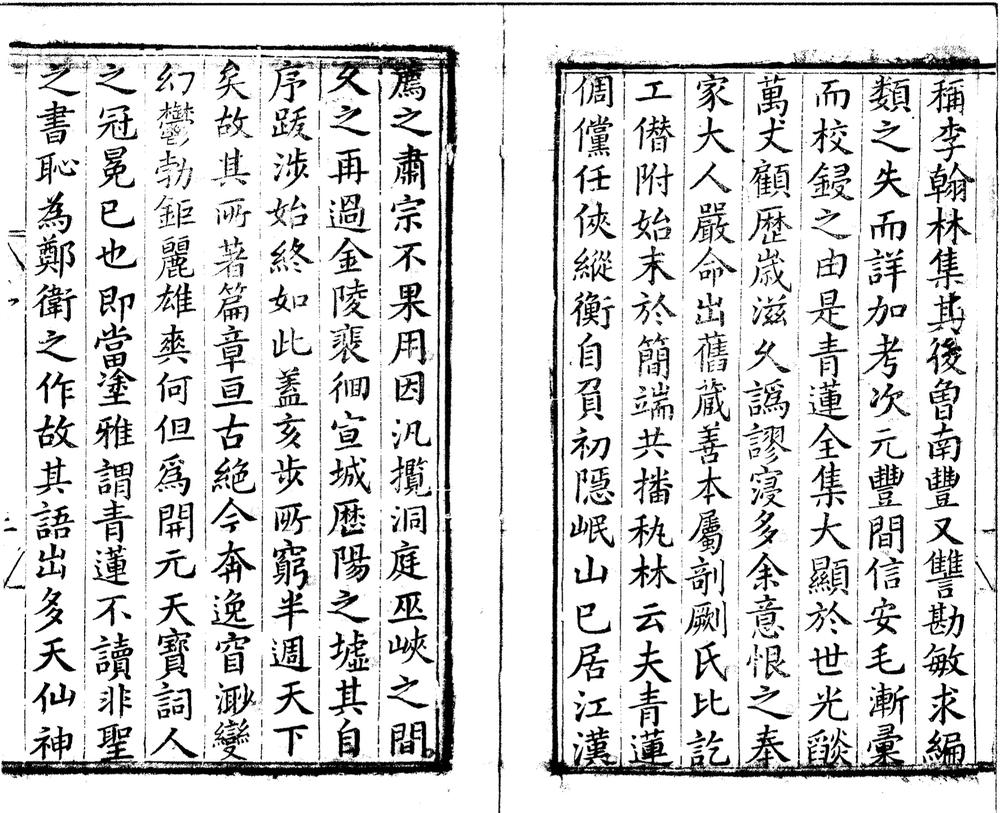 稱李翰林集其後曾南豐又讐勘敏求編
類之失而詳加考次元豐間信安毛漸彙
而校鋟之由是青蓮全集大顯於世光燄
萬丈顧歷歲滋久譌謬寖多余意恨之奉
家大人嚴命出舊蔵善本屬剞劂氏比訖
工僭附始末於簡端共播秇林云夫青蓮
倜儻任俠縱衡自負初隱岷山已居江漢
薦之肅宗不果用因汎攬洞庭巫峽之間
久之再過金陵裴徊宣城歷陽之墟其自
序跋涉始終如此蓋亥步所窮半週天下
矣故其所著篇章亘古絶今奔逸窅渺變
幻鬱勃鉅麗雄爽何但爲開元天寶詞人
之冠冕已也即當塗雅謂青蓮不讀非聖
之書恥為鄭衛之作故其語出多天仙神